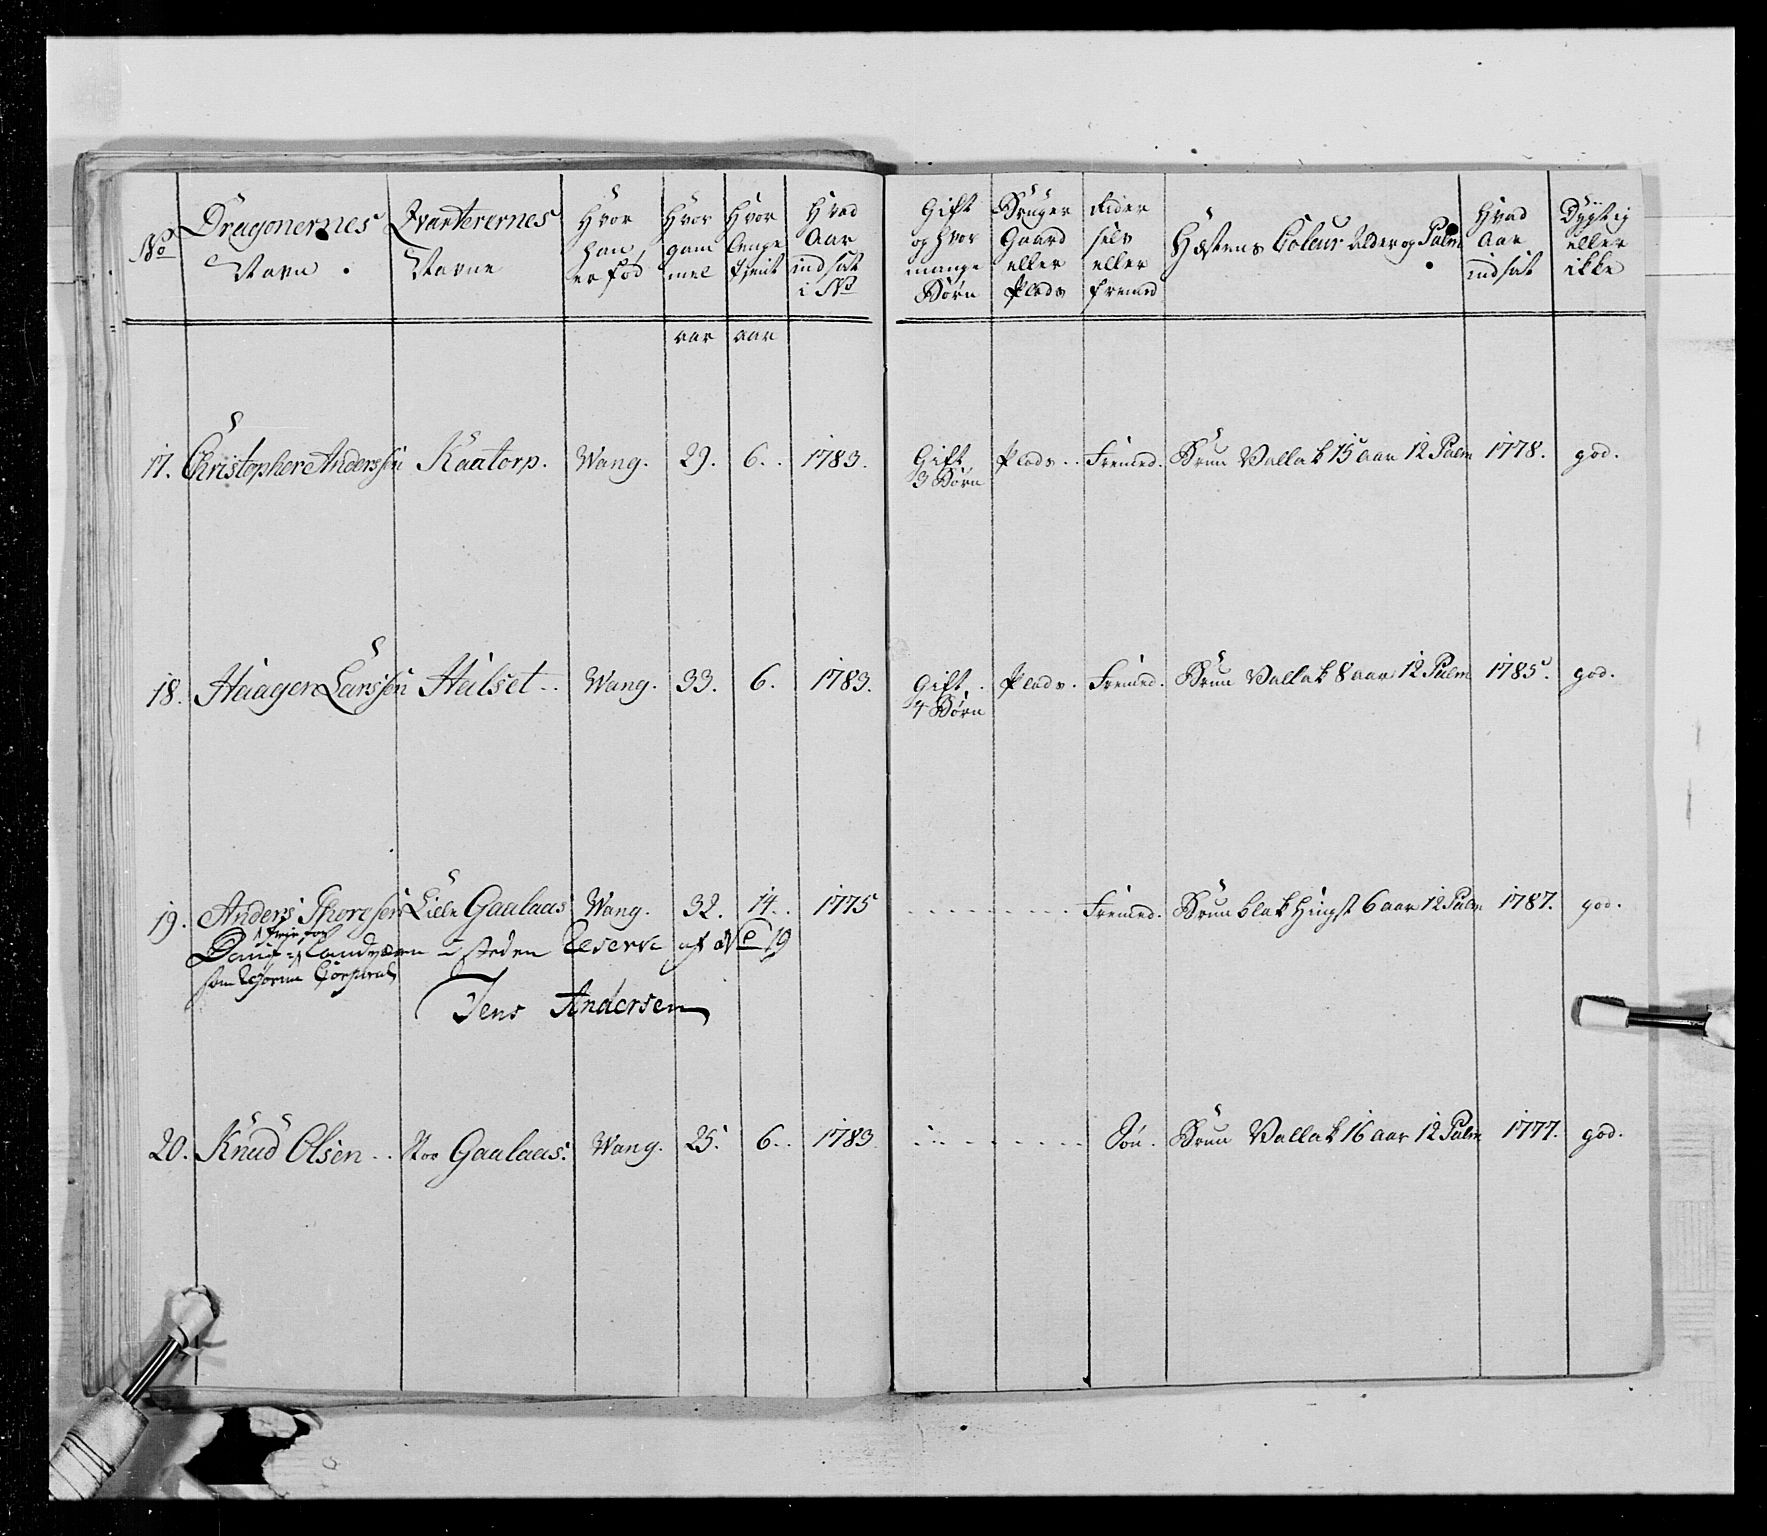 No | Dragonernes Navn | Qvarterernes Navne | Hvor han er fød | Hvor gam mel | Hvor længe tjent | Hvad Aar indsat i No | Gift og hvor mange Børn | Bruger Gaard eller Plads | Rider selv eller fremed | Hæstens Coleur Alder og Palm | Hvad Aar indsat | Dygtig eller ikke
aar | aar
17. | Christopher Anderssön | Kaatorp. | Wang. | 29. | 6. | 1783. | Gift 3 Børn | Plads. | Fremed. | Brun Vallak 15 aar 12 Palm | 1778. | god.
18. | Haagen Larssön | Hulset.. | Wang. | 33. | 6. | 1783. | Gift. 4 Børn | Plads. | Fremed. | Brun Vallak 8 aar 12 Palm | 1785. | god.
19. | Anders Thoresen | Lille Gaalaas | Wang. | 32. | 14.. | 1775 | Fremed. | Brunblak Hingst 6 aar 12 Palm | 1787. | god.
i steden Reserv af No 19
Jens Andersen
20. | Knud Olsen.. | Stor Gaalaas. | Wang. | 25. | 6.. | 1783 | Søn. | Brun Vallak 16 aar 12 Palm | 1777. | god.